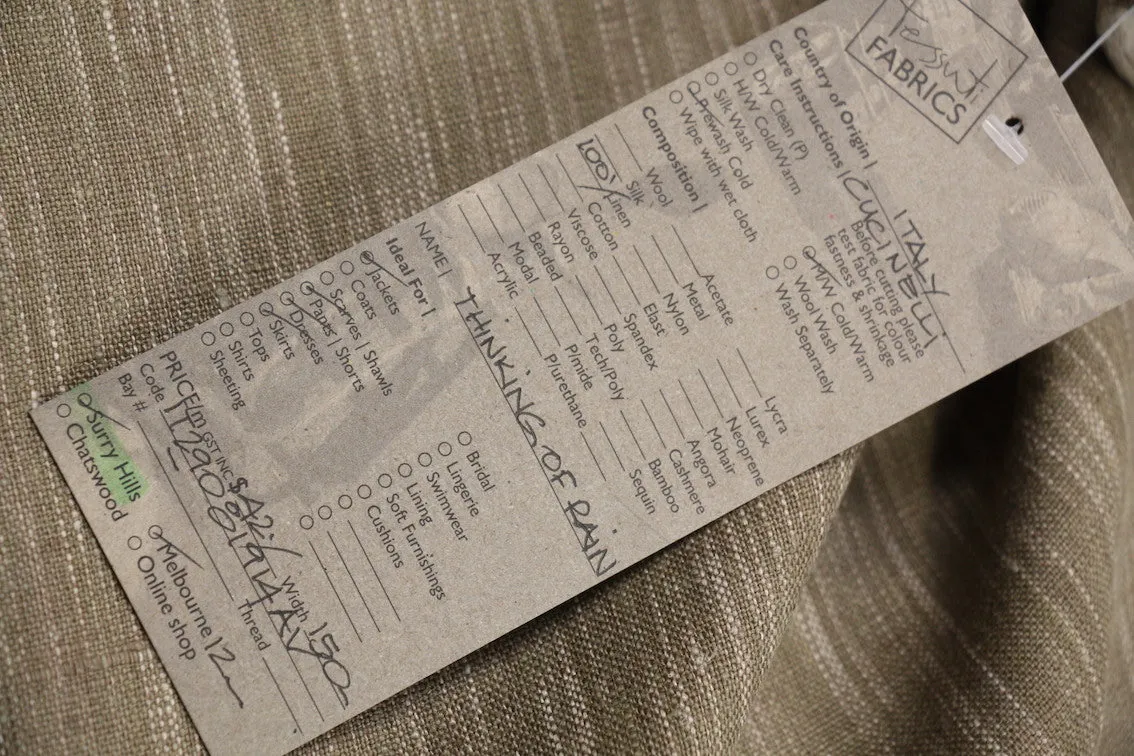 Tessuti
FABRICS
Country of Origin | ITALY
Care Instructions | CUCINELLI
Dry Clean (P)
H/W Cold/Warm
Silk Wash
Prewash Cold
Wipe with wet cloth
Before cutting please
test fabric for colour
fastness & shrinkage
M/W Cold/Warm
Wool Wash
Wash Separately
Composition |
Wool
Silk
100% Linen
Cotton
Viscose
Rayon
Beaded
Modal
Acrylic
Acetate
Metal
Nylon
Elast
Spandex
Poly
Tech/Poly
P/imide
P/urethane
Lycra
Lurex
Neoprene
Mohair
Angora
Cashmere
Bamboo
Sequin
NAME | THINKING OF RAIN
Ideal For |
Jackets
Coats
Scarves | Shawls
Pants | Shorts
Dresses
Skirts
Tops
Shirts
Sheeting
Bridal
Lingerie
Swimwear
Lining
Soft Furnishings
Cushions
PRICE/m GST INC Width 150
Code
Bay # Thread
Surry Hills
Chatswood
Melbourne 12m
Online shop